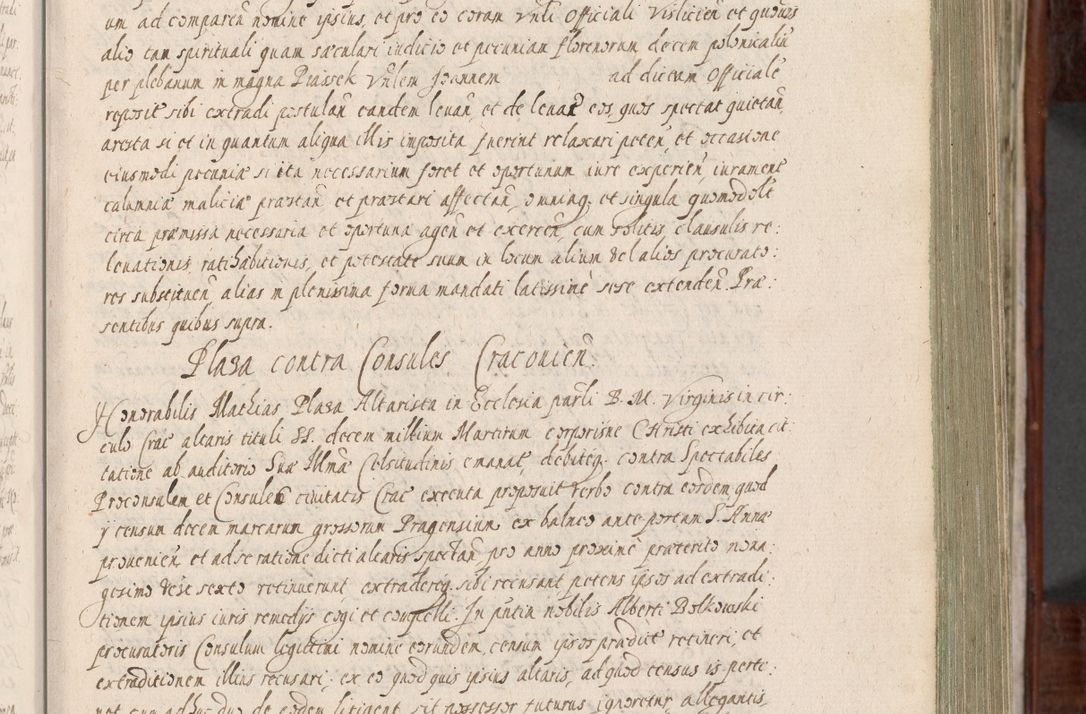 um ad comparen̄ nomine ipsius, et pro eo coram Vn̄li Officiali Visliciēn et quouis
alio tam spirituali quam sæculari iudicio et pecuniam florenorum decem polonicaliū
per plebanum in magna Piassek Vn̄lem Joannem ad dictum Officiale
reposit sibi extradi postulan̄ eandem leuan̄, et de leuat eos, quos spectat quietan̄,
aresta si et in quantum aliqua illis imposita fuerint relaxari peten̄, et occasione
eiusmodi pecuniæ si ita necessarium foret et oportunum iure experien̄, iurament
calumniæ maliciæ præstan̄ et præstari affectan̄, omniaq; et singula quomodolt
circa præmissa necessaria et oportuna agen̄ et exercen̄, cum solitis clausulis re:
leuationis, ratihabitionis, et potestate suum in locum alium vel alios procurato:
res substituen̄, alias in plenissima forma mandati latissimè sese extenden̄. Præ:
sentibus quibus supra.
Plaza contra Consules Cracouien̄.
Honorabilis Mathias Plaza Altarista in Ecclesia parl̄i B. M. Virginis in cir:
culo Crac altaris tituli SS. decem millium Martirum corporisne Christi exhibita cit:
tatione ab auditorio Suæ Illmæ Celsitudinis emanat, debiteq; contra Spectabiles
Proconsulem et Consules ciuitatis Crac executa proposuit verbo contra eosdem quod
y censum decem marcarum grossorum Pragensium ex balneo ante portam S. Annæ
prouenien̄ et ad se ratione dicti altaris spectan̄ pro anno proximè præterito nona:
gesimo sexto retinuerunt extradereq; sibi recusant petens ipsos ad extradi:
tionem ipsius iuris remedijs cogi et compelli. In pntia nobilis Alberti Bolkowski
procuratoris Consulum legittimi nomine eorundem, censum ipsos prædict retineri, et
extraditionem illius recusari, ex eo quod quis ipsius altaris, ad quod census is perti:
net cum adhuc duo de eodem litigent sit possessor futurus ignoretur, allegantis